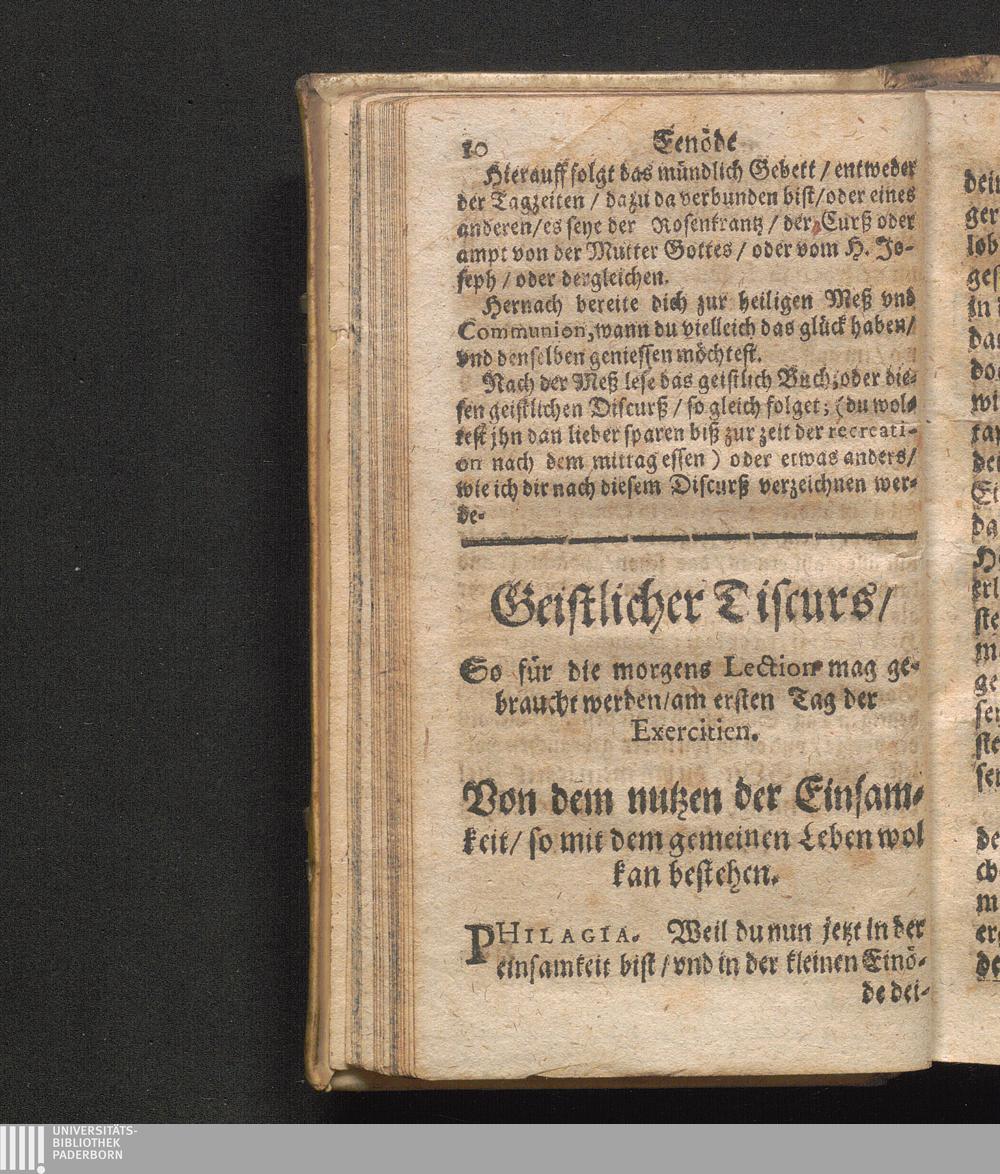 10 Eenöde
Hierauff folgt das mündlich Gebett / entweder
der Tagzeiten / dazu da verbunden bist/oder eines
anderen/es seye der Rosenkrantz / der Curß oder
ampt von der Mutter Gottes / oder vom H. Jo-
seph / oder dergleichen.
Hernach bereite dich zur heiligen Meß vnd
Communion, wann du vielleich das glück haben/
vnd denselben geniessen möchtest.
Nach der Meß lese das geistlich Buch, oder die-
sen geistlichen Discurß / so gleich folget; (du wol-
test jhn dan lieber sparen biß zur zeit der recreati-
on nach dem mittag essen) oder etwas anders/
wie ich dir nach diesem Discurß verzeichnen wer-
de.
Geistlicher Discurs/
So für die morgens Lection mag ge-
braucht werden/am ersten Tag der
Exercitien.
Von dem nutzen der Einsam-
keit/ so mit dem gemeinen Leben wol
kan bestehen.
PHILAGIA. Weil du nun jetzt in der
einsamkeit bist / vnd in der kleinen Einö-
de dei-
UNIVERSITÄTS-
BIBLIOTHEK
PADERBORN